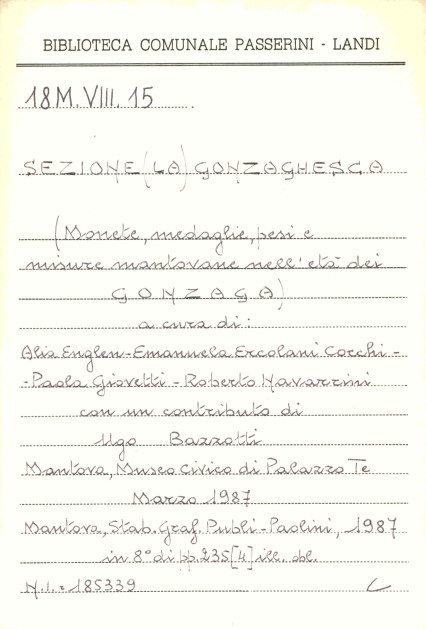 BIBLIOTECA COMUNALE PASSERINI - LANDI
18M.VIII.15
SEZIONE (LA) GONZAGHESCA
(Monete, medaglie, pesi e
misure mantovane nell'età dei
GONZAGA)
a cura di:
Alia Englen - Emanuela Ercolani Cocchi -
- Paola Giovetti - Roberto Navarrini
con un contributo di
Ugo Bazzotti
Mantova, Museo Civico di Palazzo Te
Marzo 1987
Mantova, Stab. Graf. Publi - Paolini, 1987
in 8° di pp. 235 [4] ill. bl.
N.I. = 185339 C